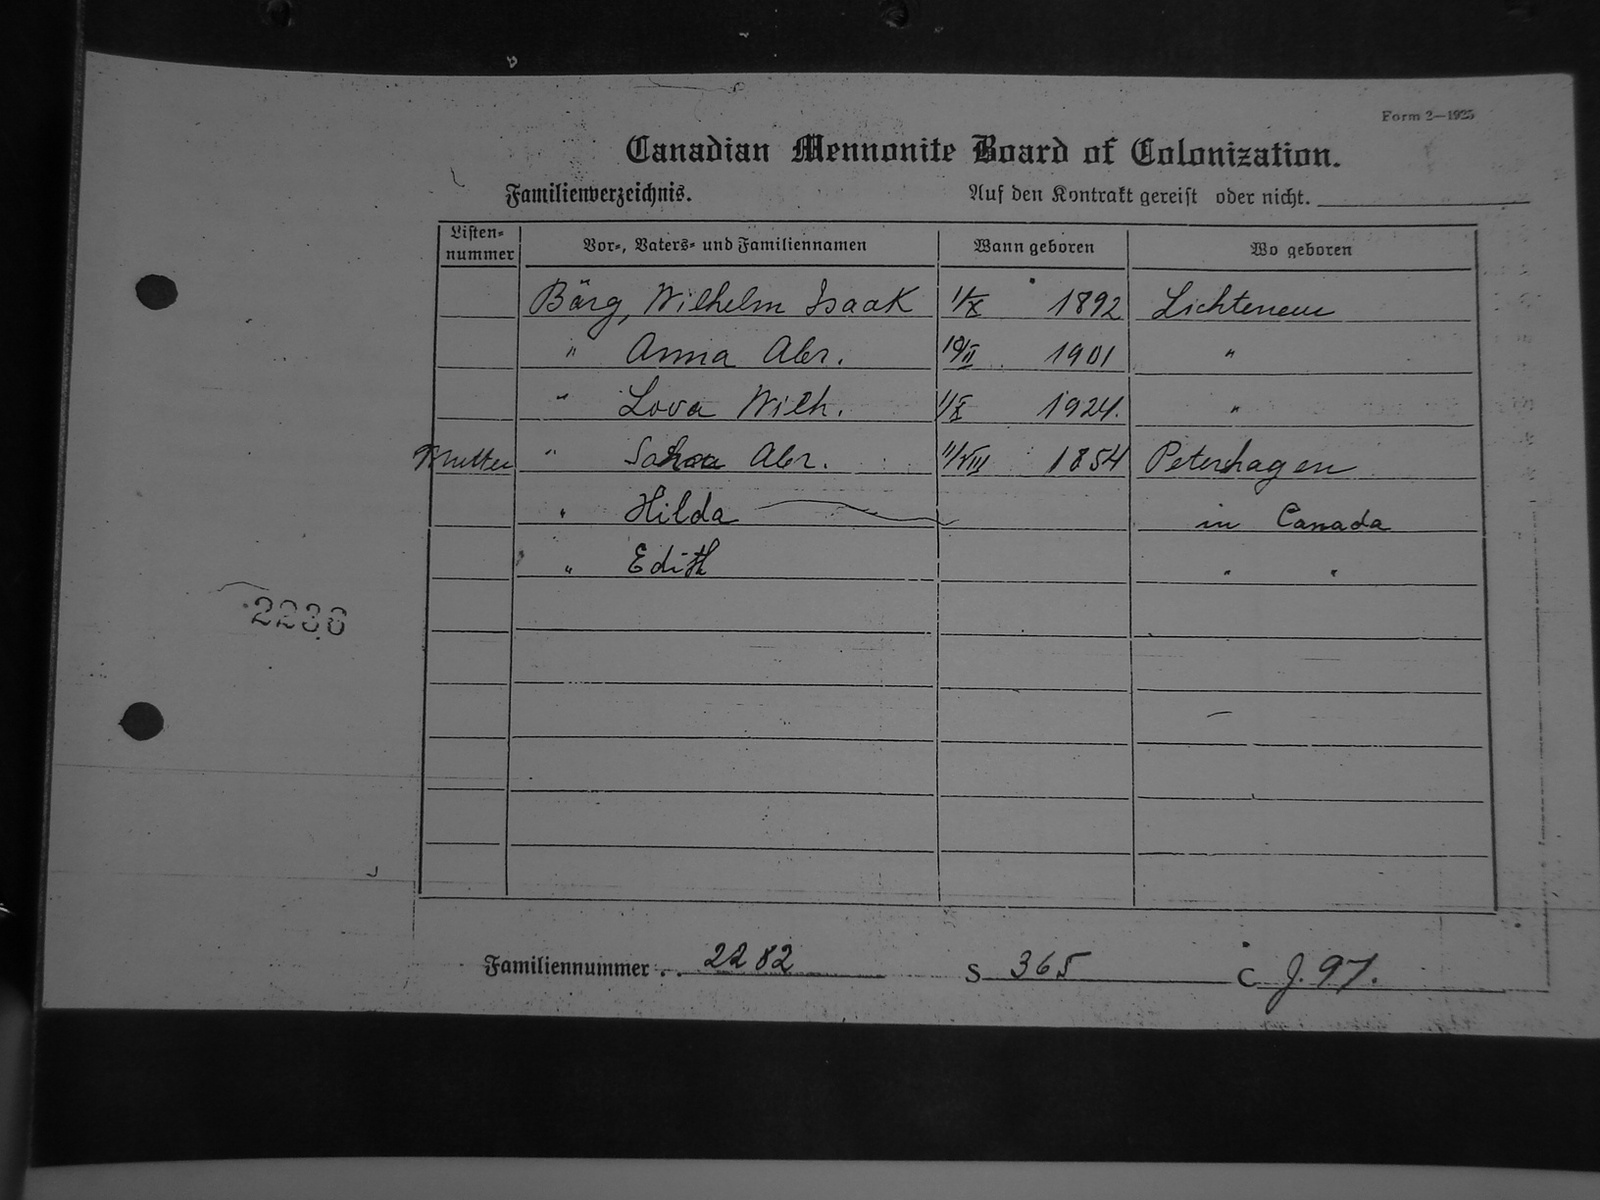 Form 2—1925
Canadian Mennonite Board of Colonization.
Familienverzeichnis. Auf den Kontrakt gereist oder nicht.
Listen-nummer Vor-, Vaters- und Familiennamen Wann geboren Wo geboren
Bärg, Wilhelm Isaak 1/X 1892 Lichtenau
" Anna Abr. 19/II 1901 "
" Wilh. 1/X 1924. "
Mutter " Abr. 11/VIII 1854 Petershagen
" Hilda in Canada
" Edith " "
2236
Familiennummer . . 2282 S 365 C J. 97.